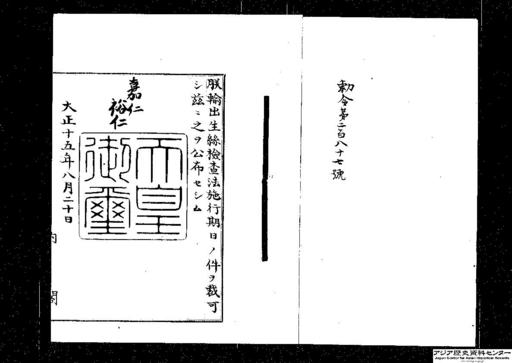 勅令第二百八十七號
朕輸出生絲檢査法施行期日ノ件ヲ裁可
シ茲ニ之ヲ公布セシム
嘉仁
裕仁
天皇御璽
大正十五年八月二十日
内閣
アジア歴史資料センター
Japan Center for Asian Historical Records